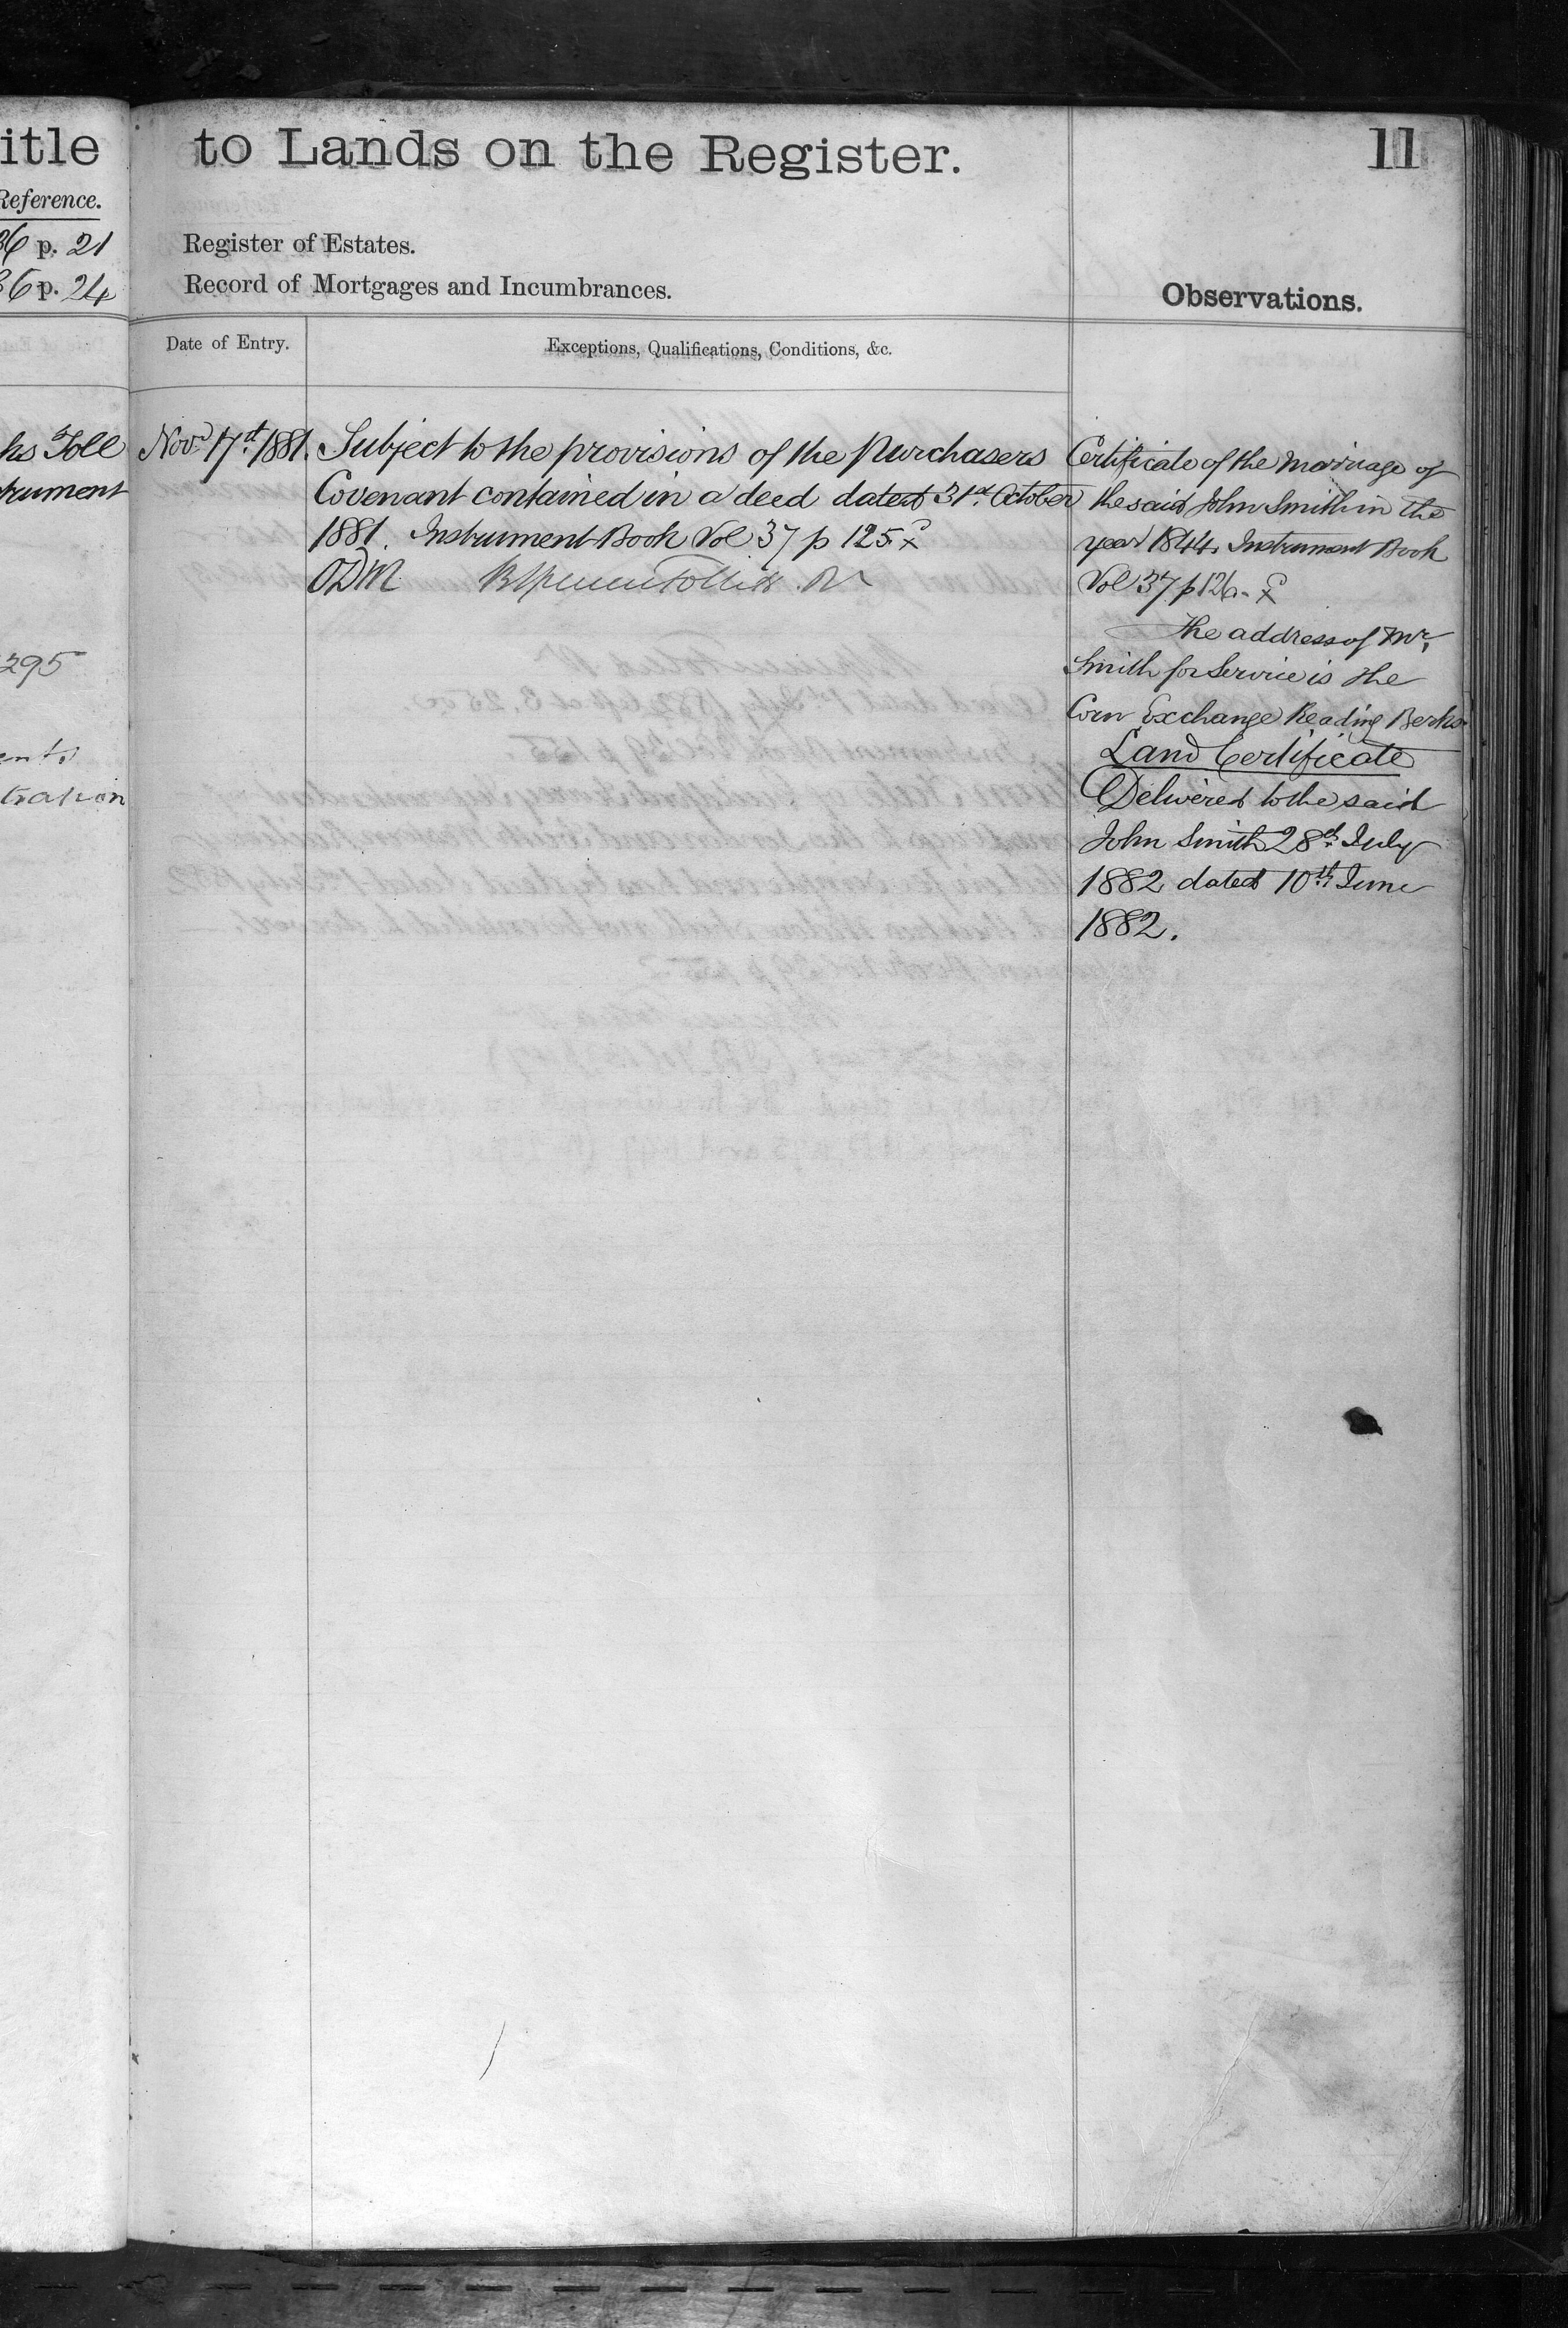 itle
Reference.
36 p. 21
36 p. 24
ks Toll
trument
295
ents
tration
to Lands on the Register.
11
Register of Estates.
Record of Mortgages and Incumbrances.
Observations.
Date of Entry.
Exceptions, Qualifications, Conditions, &c.
Nov. 17th 1881.
Subject to the provisions of the Purchasers
Covenant contained in a deed dated 31st October
1881. Instrument Book Vol 37 p 125
ODM
Certificate of the marriage of
the said John Smith in the
year 1844. Instrument Book
Vol 37 p 126
The address of Mr
Smith for Service is the
Corn Exchange Reading Berks
Land Certificate
Delivered to the said
John Smith 28th July
1882 dated 10th June
1882.